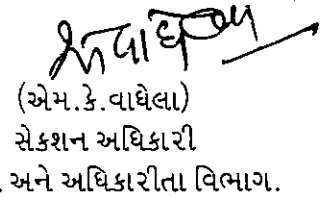 (એમ.કે.વાઘેલા)
સેકશન અધિકારી
અને અધિકારીતા વિભાગ.